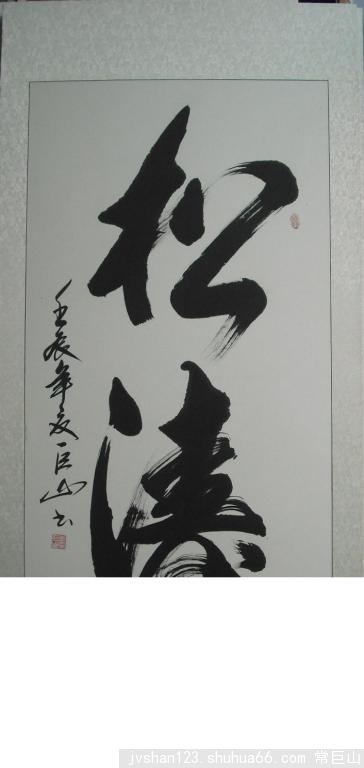 松涛
壬辰年夏巨山书
jvshan123.shuhua66.com 常巨山